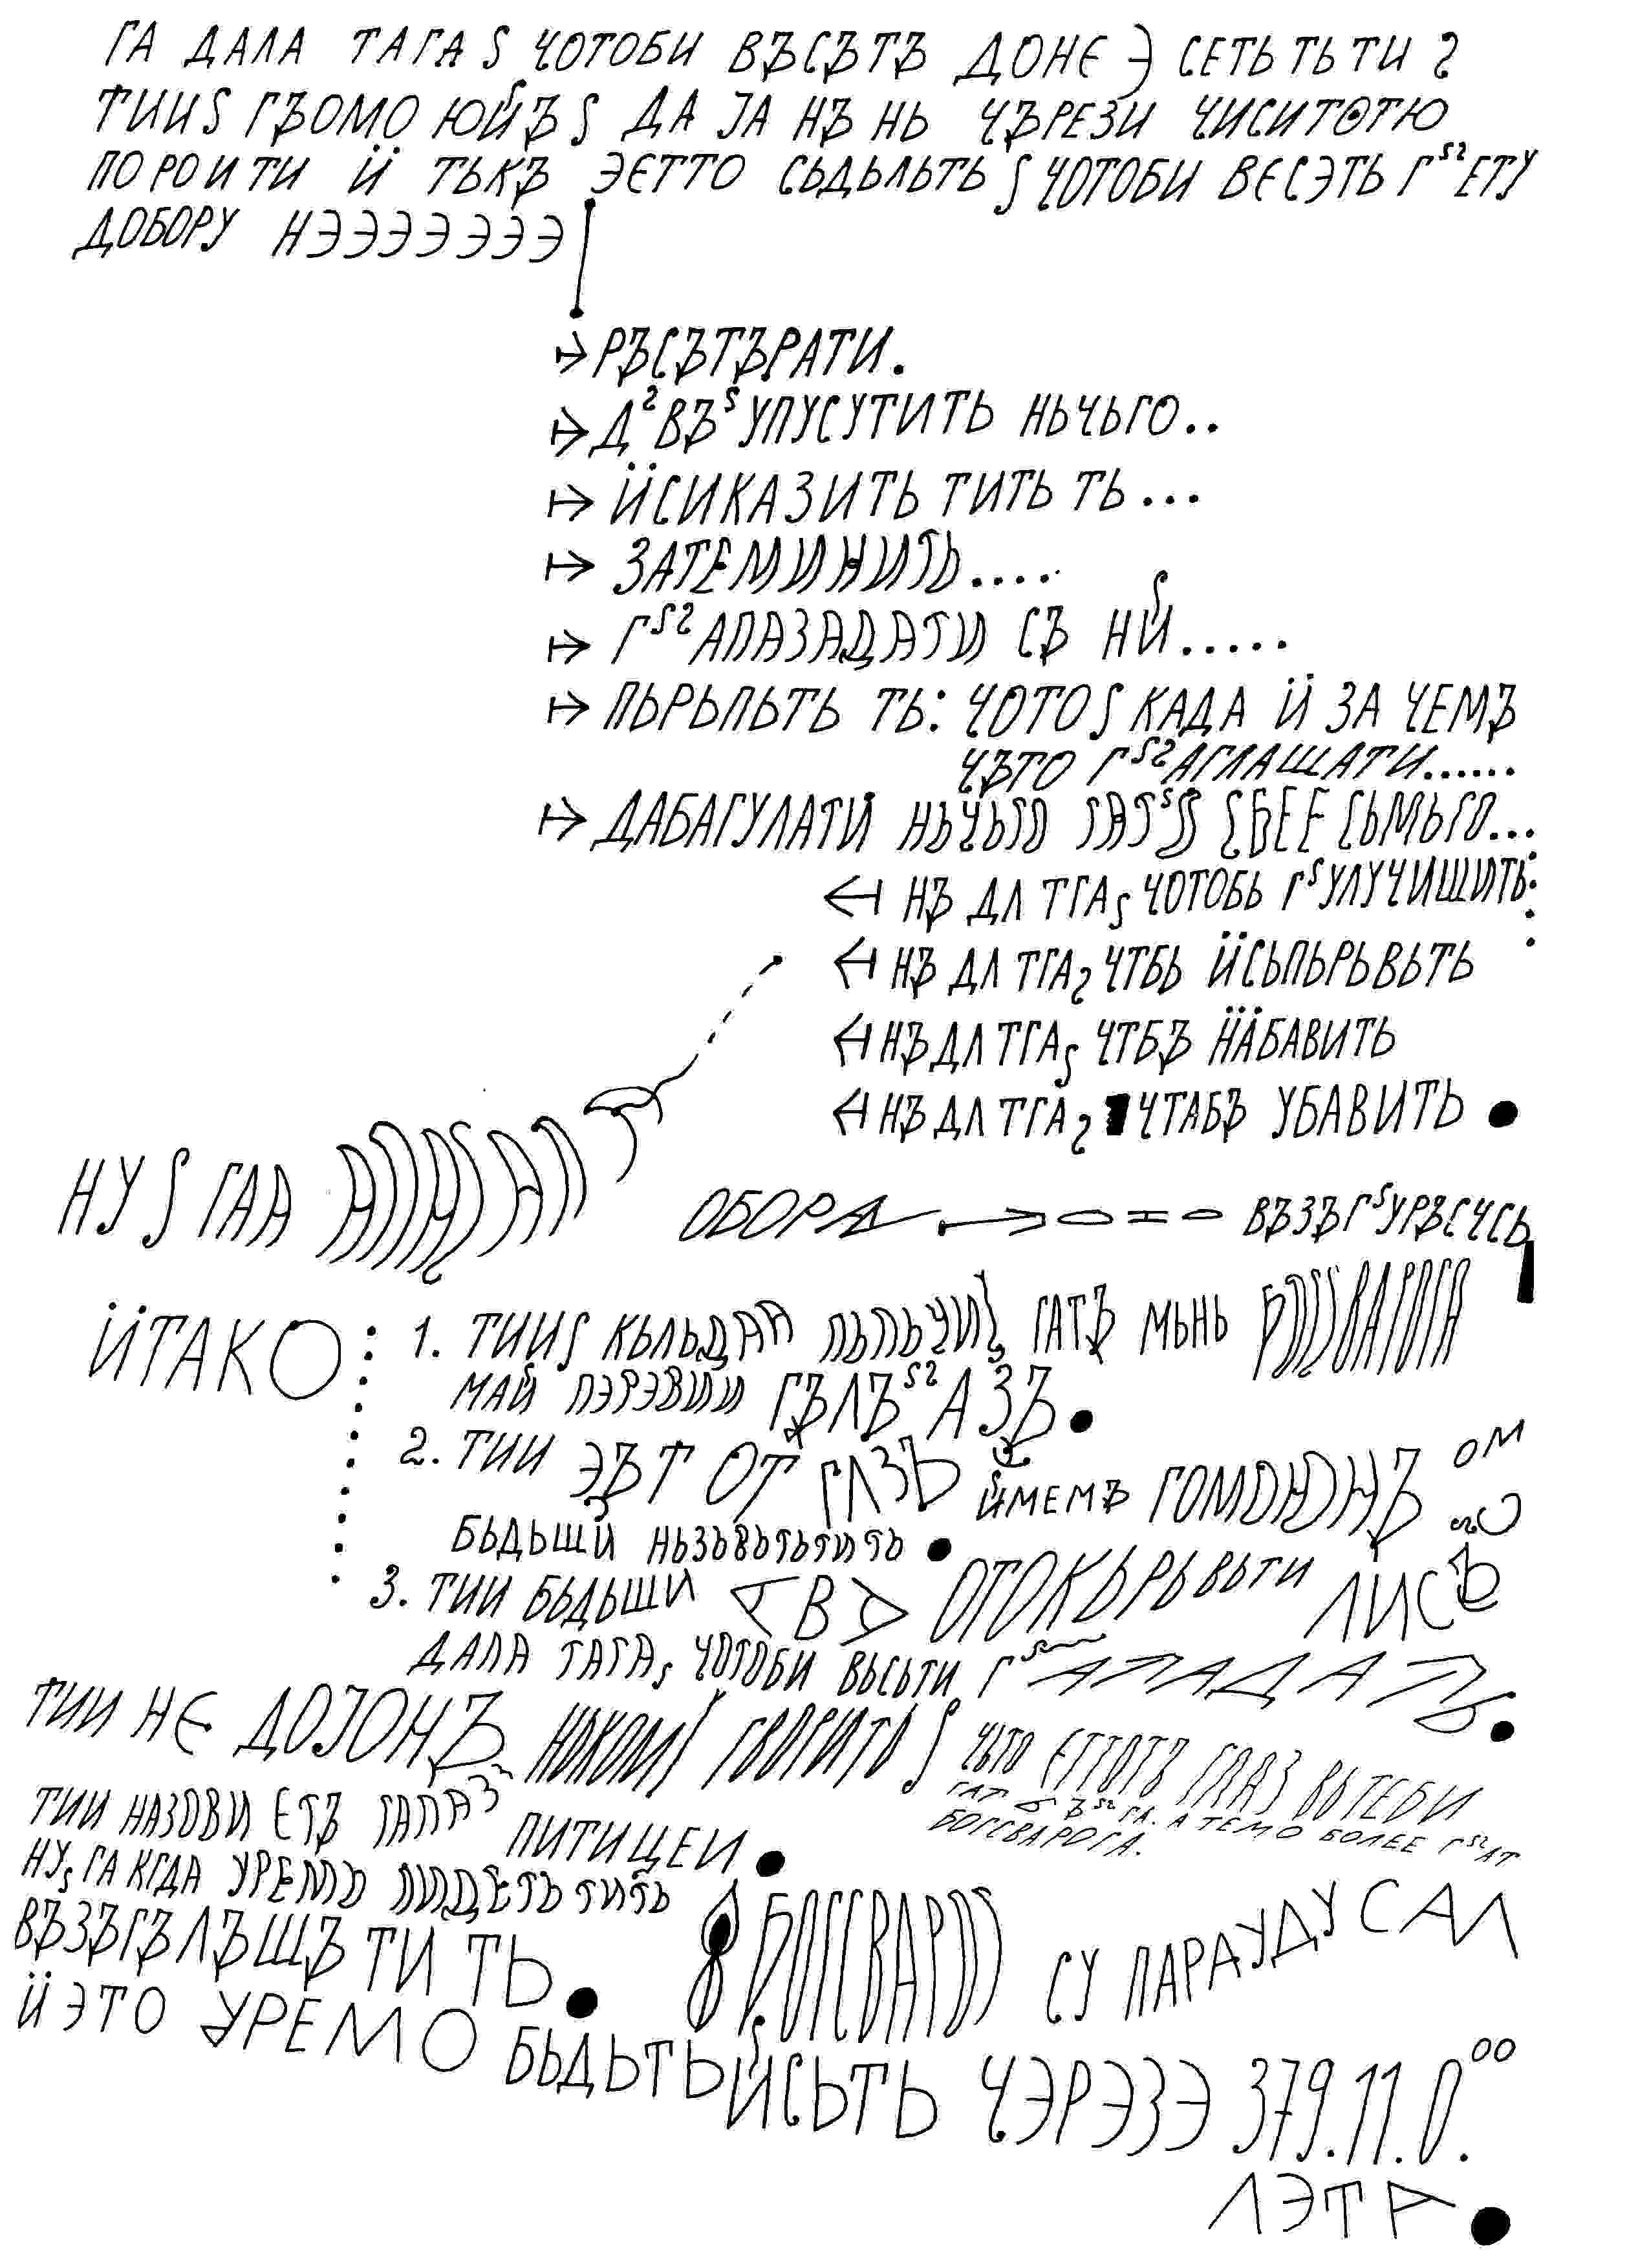 ГА ДАЛА ТАГАЅ ЧОТОБИ ВЪСЪТЬ ДОНЄ Э СЕТЬ ТЬ ТИ Ƨ
ТИИЅ ГЪОМО ЮЙЪЅ ДА ЈА НЪ НЬ ЧЪРЕЗИ ЧИСИТОТЮ
ПОРОИТИ Й ТЬКЪ ЭЄТТО СЬДЬЛЬТЬ Ѕ ЧОТОБИ ВЕСЭТЬ ГЅƧЕТУ
ДОБОРУ НЭЭЭЭЭЭЭ
↦ РЪСЪТЪРАТИ.
↦ ДƧВЪЅ УПУСУТИТЬ НЬЧЬГО..
↦ ЙСИКАЗИТЬ ТИТЬ ТЬ...
↦ ЗАТЕМИНИТЬ....
↦ ГЅƧАПАЗАДАТИ СЪ НЙ.....
↦ ПЬРЬПЬТЬ ТЬ: ЧОТОЅ КАДА Й ЗА ЧЕМЪ
ЧЪТО ГЅƧАГЛАШАТИ......
↦ ДАБАГУЛАТИ НЬЧЬГО СЬМЬГО...
↤ НЪ ДЛ ТГАЅ ЧОТОБЬ ГЅУЛУЧИШИТЬ
↤ НЪ ДЛ ТГАƧ ЧТБЬ ЙСЬПЬРЬВЬТЬ
↤ НЪ ДЛ ТГАЅ ЧТБЪ НАБАВИТЬ
↤ НЪ ДЛ ТГАƧ ЧТАБЪ УБАВИТЬ ●
НУЅ ГАА
ОБОРА ВЪЗЪГЅУРЪСЧСЬ
ЙТАКО
1. ТИИЅ КЬЛЬДАА ПЬПЬЧИ ГАТЪ МЬНЬ
МАЙ ПЭРЭВИИ ГЪЛЪЅƧАЗЪ.
2. ТИИ ЭЪТ ОТ ГЛЗЬ ЙМЕМЪ
БЬДЬШЙ НЬЗЬВЬТЬТИТЬ ●
3. ТИИ БЬДЬШИ АВА ОТОКЬРЬВЬТИ ЛИСЪ
ДАЛА ТАГАЅ ЧОТОБИ ВЬСЬТИ ГЅАПАДАТЬ.
ТИИ НЄ ДОЈОНЪ НЬКОМУ ГВОРИТЬ Ѕ ЧЬТО ЕТТОТЪ ГЛАЗ ВЬТЕБИ
БОГСВАРОГА.
ТИИ НАЗОВИ ЕТЪ ГАПАЗ ПИТИЦЕИ ●
НУЅ ГА КГДА УРЕМЬ ПИДЕТЬ ТИТЬ
ВЪЗЪГЪЛЪШЪ ТИ ТЬ.
СУ ПАРАУДУ САЛ
Й ЭТО УРЕМО БЬДЬТЬ ЙСЬТЬ ЧЭРЭЗЭ 379.11.0.⁰⁰
ЛЭТА ●